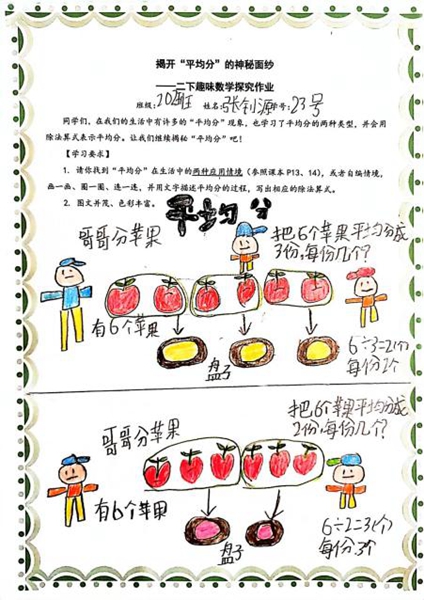 揭开“平均分”的神秘面纱
——二下趣味数学探究作业
班级: 202班 姓名: 张钊源 学号: 23号
同学们，在我们的生活中有许多的“平均分”现象，也学习了平均分的两种类型，并会用
除法算式表示平均分。让我们继续揭秘“平均分”吧！
【学习要求】
1. 请你找到“平均分”在生活中的两种应用情境（参照课本P13、14），或者自编情境，
画一画、圈一圈、连一连，并用文字描述平均分的过程，写出相应的除法算式。
2. 图文并茂、色彩丰富。
平均分
哥哥分苹果
把6个苹果平均分成
3份,每份几个?
有6个苹果
盘子
6÷3=2(个)
每份2个
哥哥分苹果
把6个苹果平均分成
2份,每份几个?
有6个苹果
盘子
6÷2=3(个)
每份3个